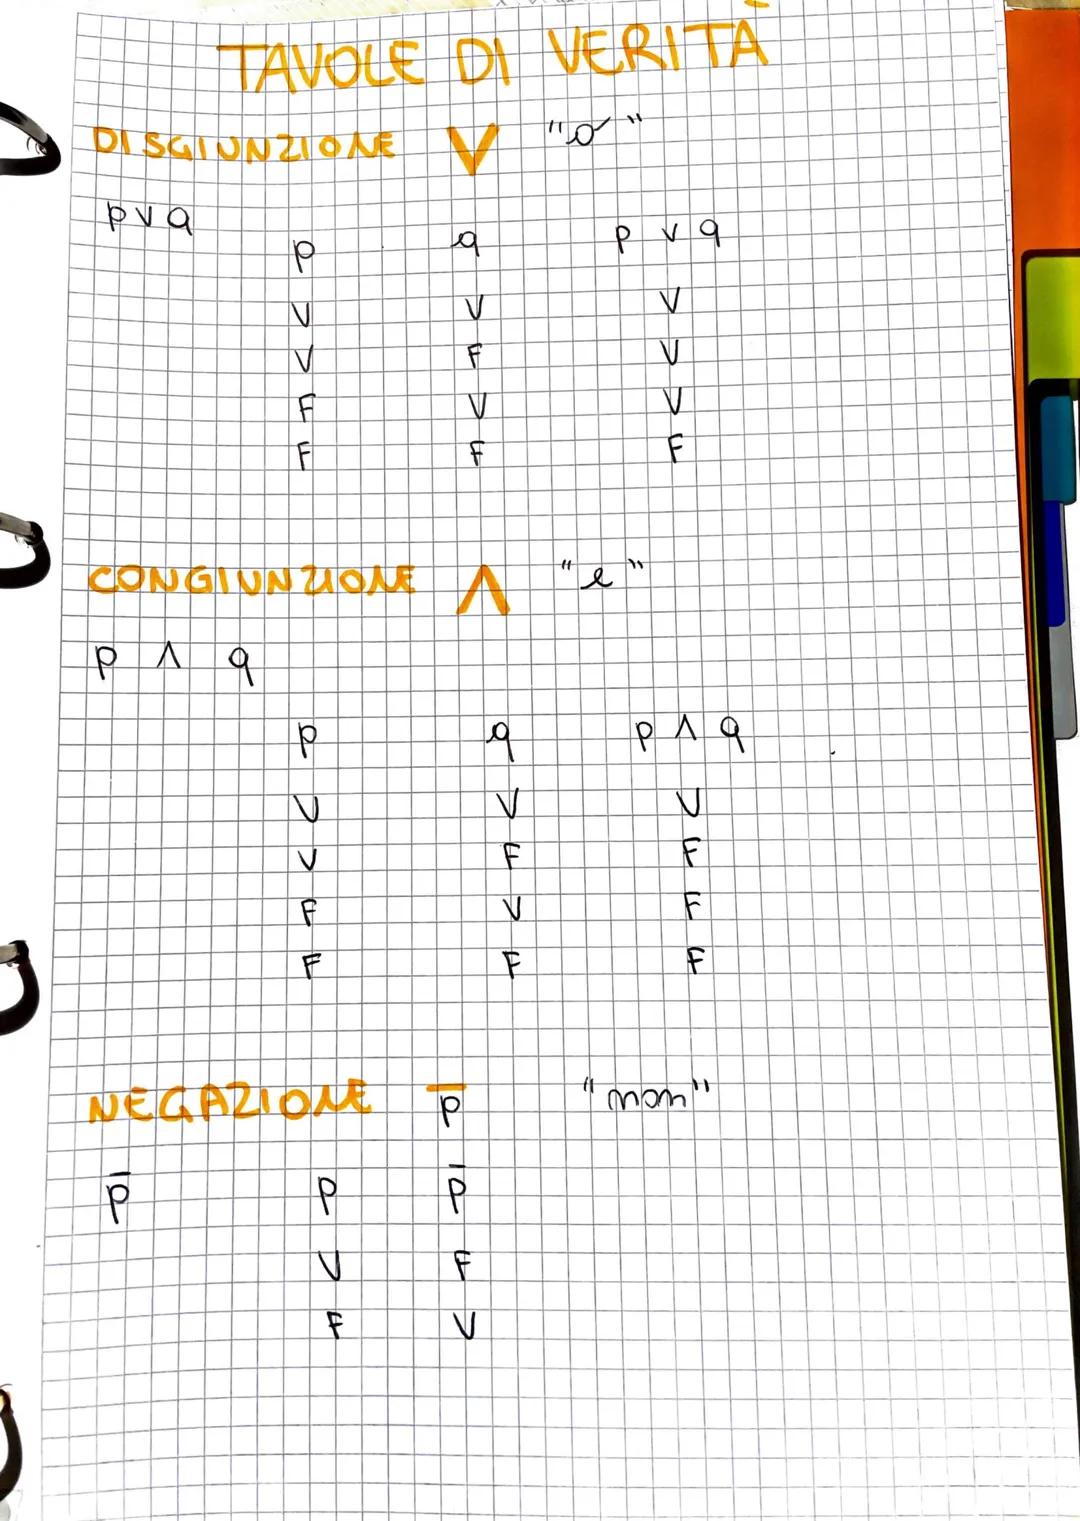 TAVOLE DI VERITÀ
DISGIUNZIONE V "o"
p v q
p q p v q
V V V
V F V
F V V
F F F
CONGIUNZIONE Λ "e"
p Λ q
p q p Λ q
V V V
V F F
F V F
F F F
NEGAZIONE p̅ "non"
p̅ p p̅
V F
F V